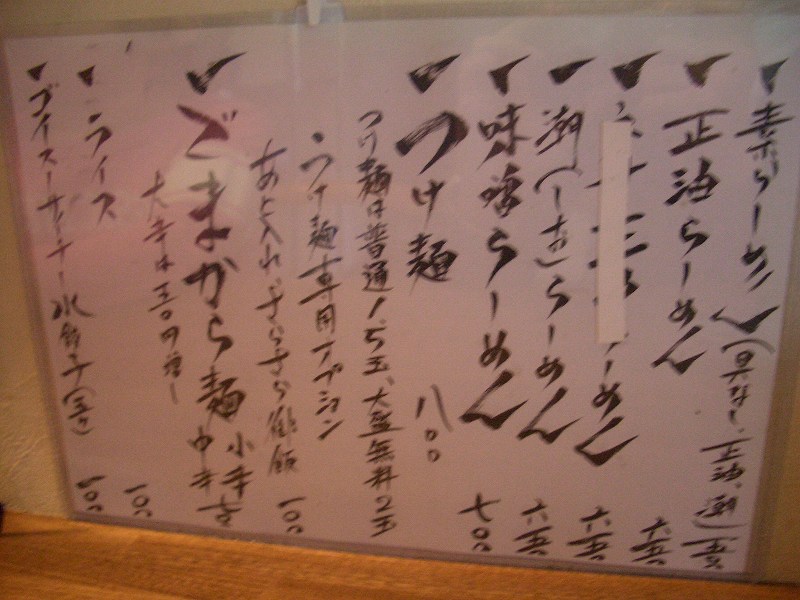 素らーめん(具なし、正油、潮)五五〇
正油らーめん 六五〇
らーめん 六五〇
潮(しお)らーめん 六五〇
味噌らーめん 七〇〇
つけ麺 八〇〇
つけ麺は普通1.5玉、大盛無料2玉
つけ麺専用オプション
あと入れ 御飯 100
ごまから麺 小辛 中辛
大辛は五〇円増し
ライス 100
水餃子